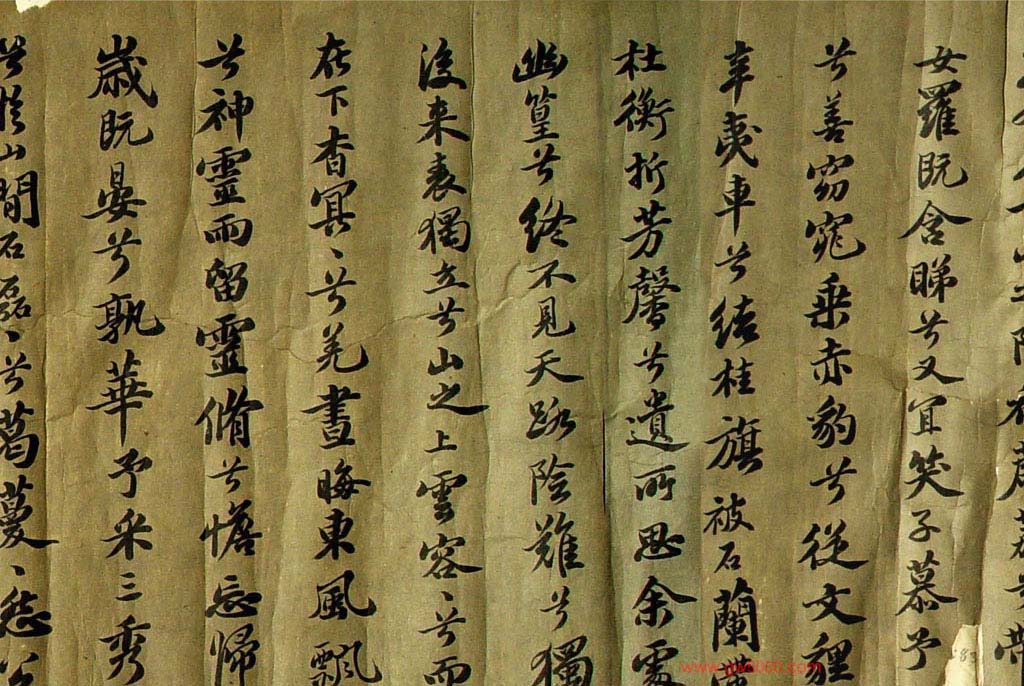 山之阿被薜荔兮帶
女羅既含睇兮又宜笑子慕予
兮善窈窕乘赤豹兮從文貍
辛夷車兮結桂旗被石蘭
杜衡折芳馨兮遺所思余處
幽篁兮終不見天路險難兮獨
後来表獨立兮山之上雲容〻兮而
在下杳冥〻兮羌晝晦東風飄
兮神靈雨留靈脩兮憺忘歸
歲既晏兮孰華予采三秀
兮於山間石磊〻兮葛蔓〻怨公